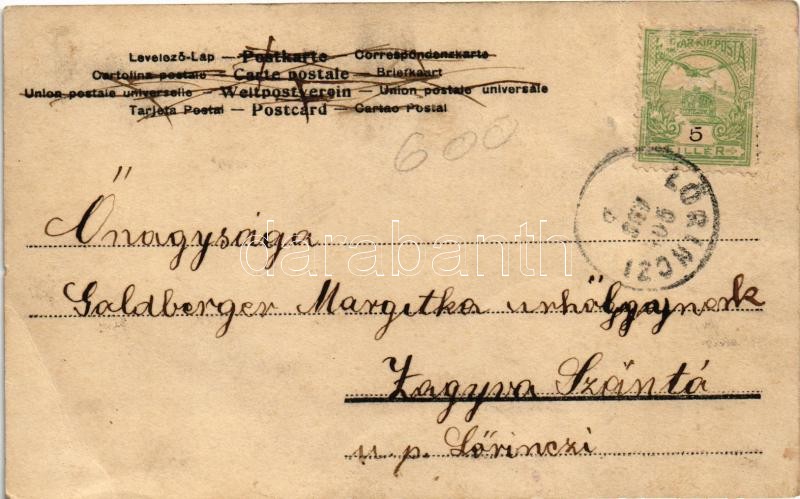 Levelező-Lap – Postkarte – Correspondenzkarte
Cartolina postale – Carte postale – Briefkaart
Union postale universelle – Weltpostverein – Union postale universale
Tarjeta Postal – Postcard – Cartao Postal
MAGYAR KIR. POSTA
5
FILLÉR
600
LŐRINCZI
Őnagysága
darabanth
Goldberger Margitka urhölgynek
Zagyva Szántó
u. p. Lőrinczi